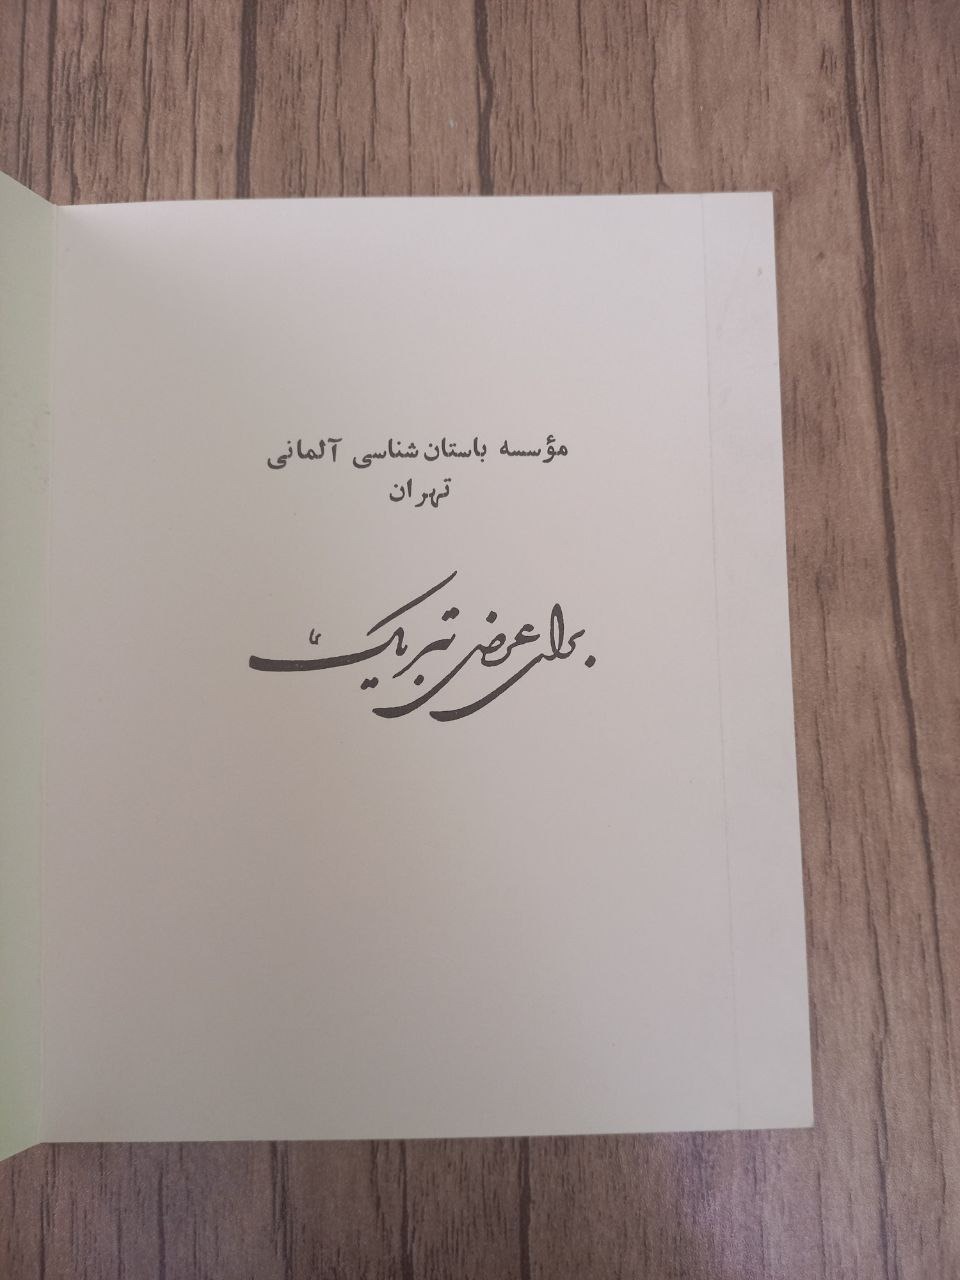 مؤسسه باستان شناسی آلمانی
تهران
برای عرض تبریک